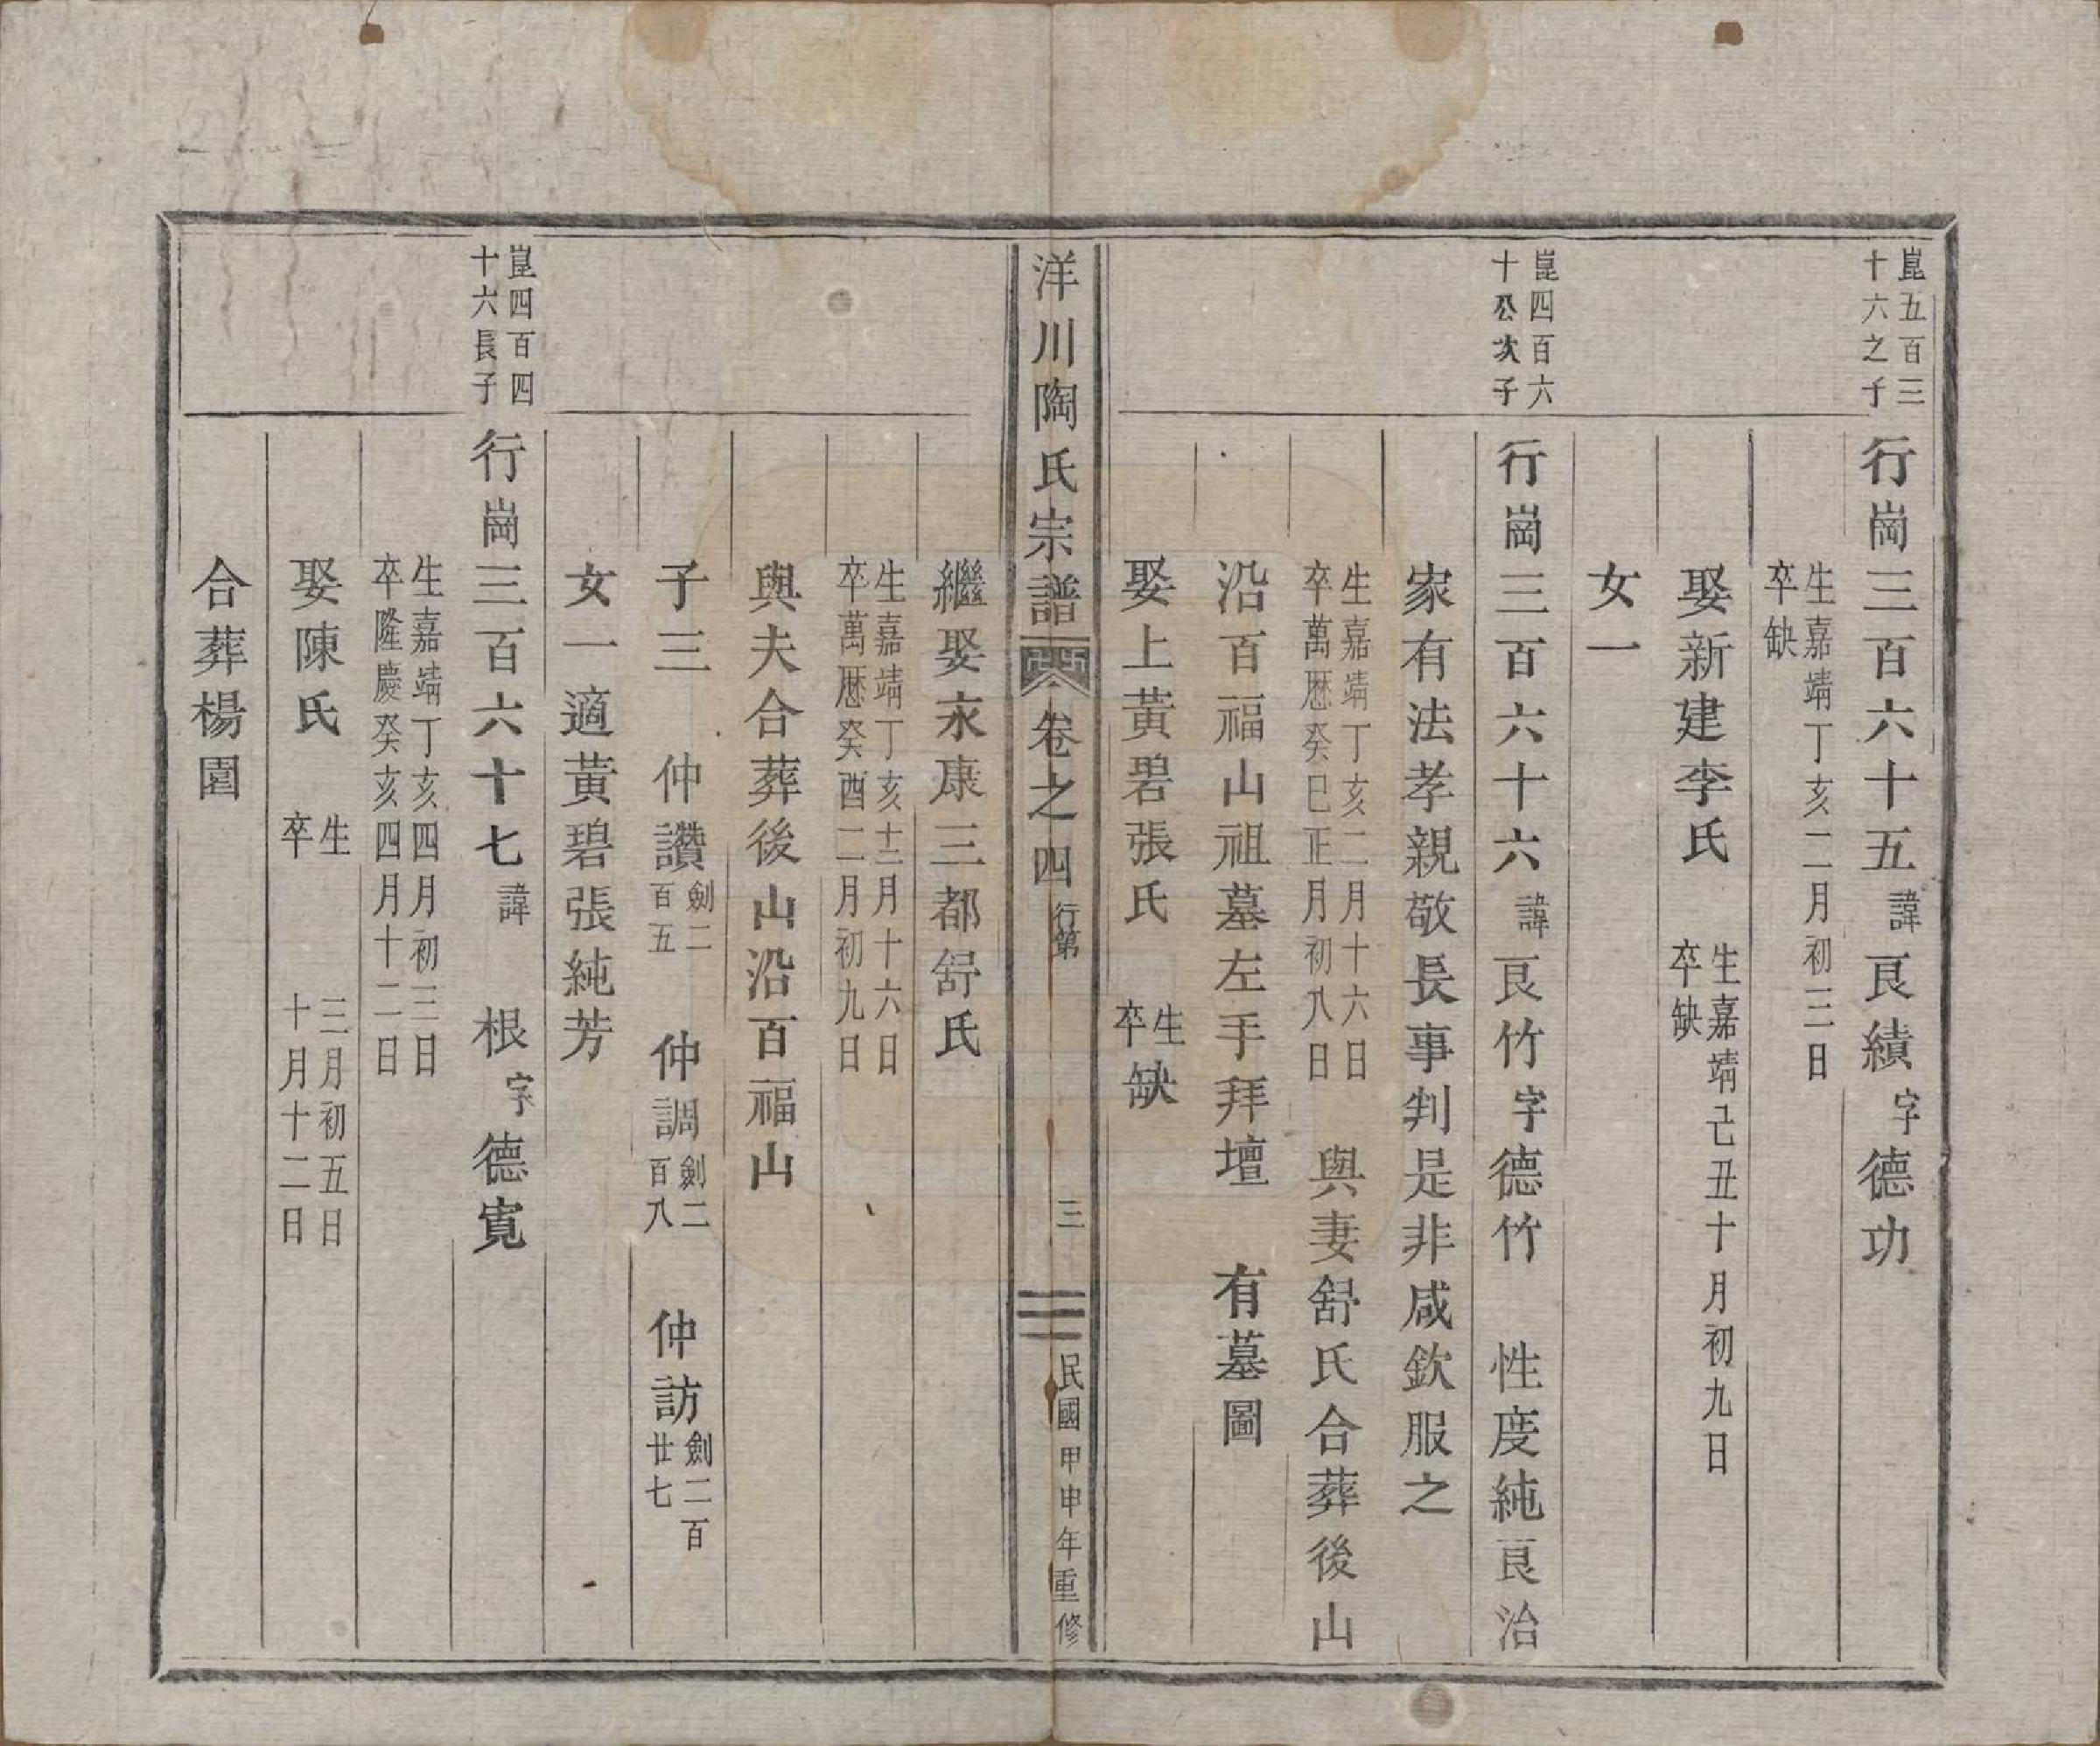 崑五百三
十六之子
行崗三百六十五諱良績字德功
生嘉靖丁亥二月初三日
卒缺
娶新建李氏
生嘉靖己丑十月初九日
卒缺
女一
崑四百六
十公次子
行崗三百六十六諱良竹字德竹 性度純良治
家有法孝親敬長事判是非咸欽服之
生嘉靖丁亥二月十六日
卒萬歷癸巳正月初八日
與妻舒氏合葬後山
沿百福山祖墓左手拜壇 有墓圖
娶上黃碧張氏
生
卒
缺
洋川陶氏宗譜 卷之四 行第 三 民國甲申年重修
繼娶永康三都舒氏
生嘉靖丁亥十二月十六日
卒萬歷癸酉二月初九日
與夫合葬後山沿百福山
子三 仲讚劍二百五 仲調劍二百八 仲訪劍二百廿七
女一適黃碧張純芳
崑四百四
十六長子
行崗三百六十七諱 根字德寬
生嘉靖丁亥四月初三日
卒隆慶癸亥四月十二日
娶陳氏
生 三月初五日
卒 十月十二日
合葬楊園